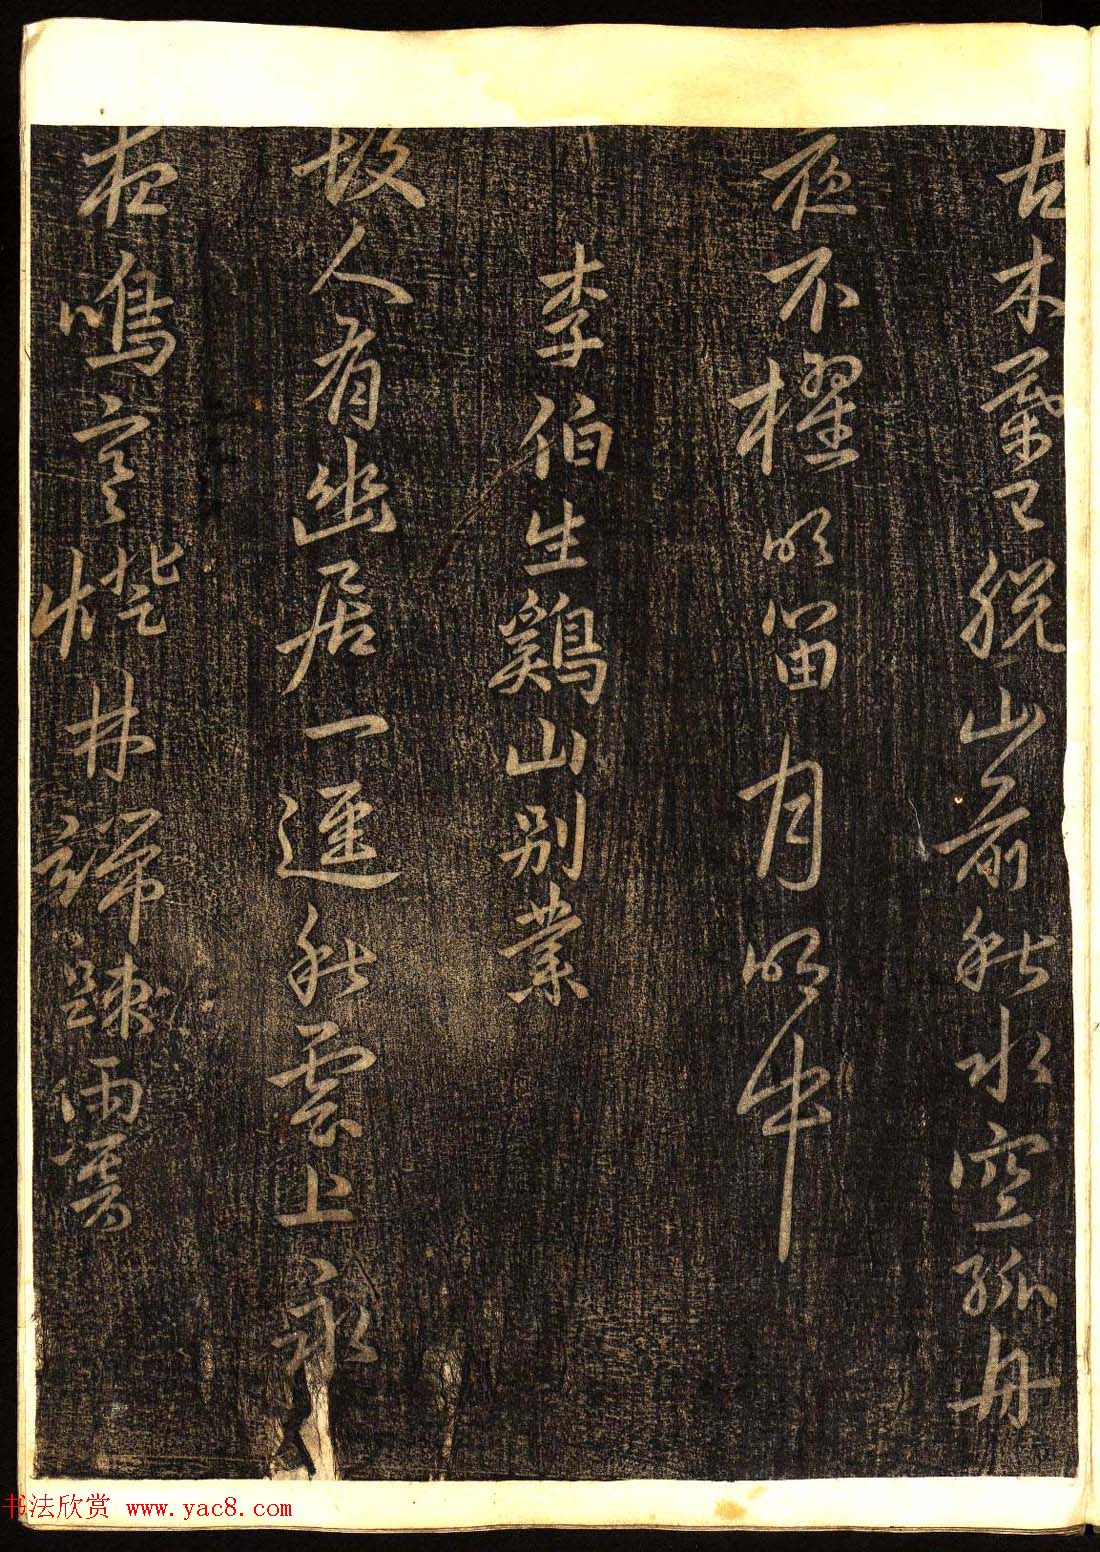 古木葉已脱山前秋水空孤舟
夜不櫂明留月明中
李伯生鷄山别業
故人有幽居一逕秋雲上永
夜鳴寒 林端踈雨響
书法欣赏 www.yac8.com